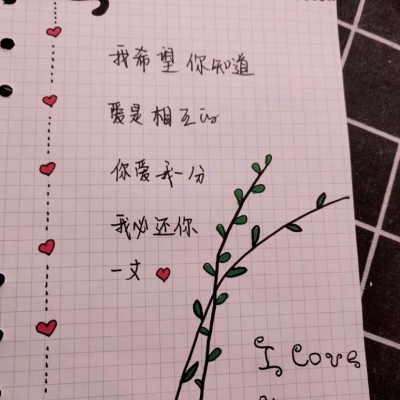 我希望你知道
爱是相互的
你爱我一分
我必还你
一丈
I Love